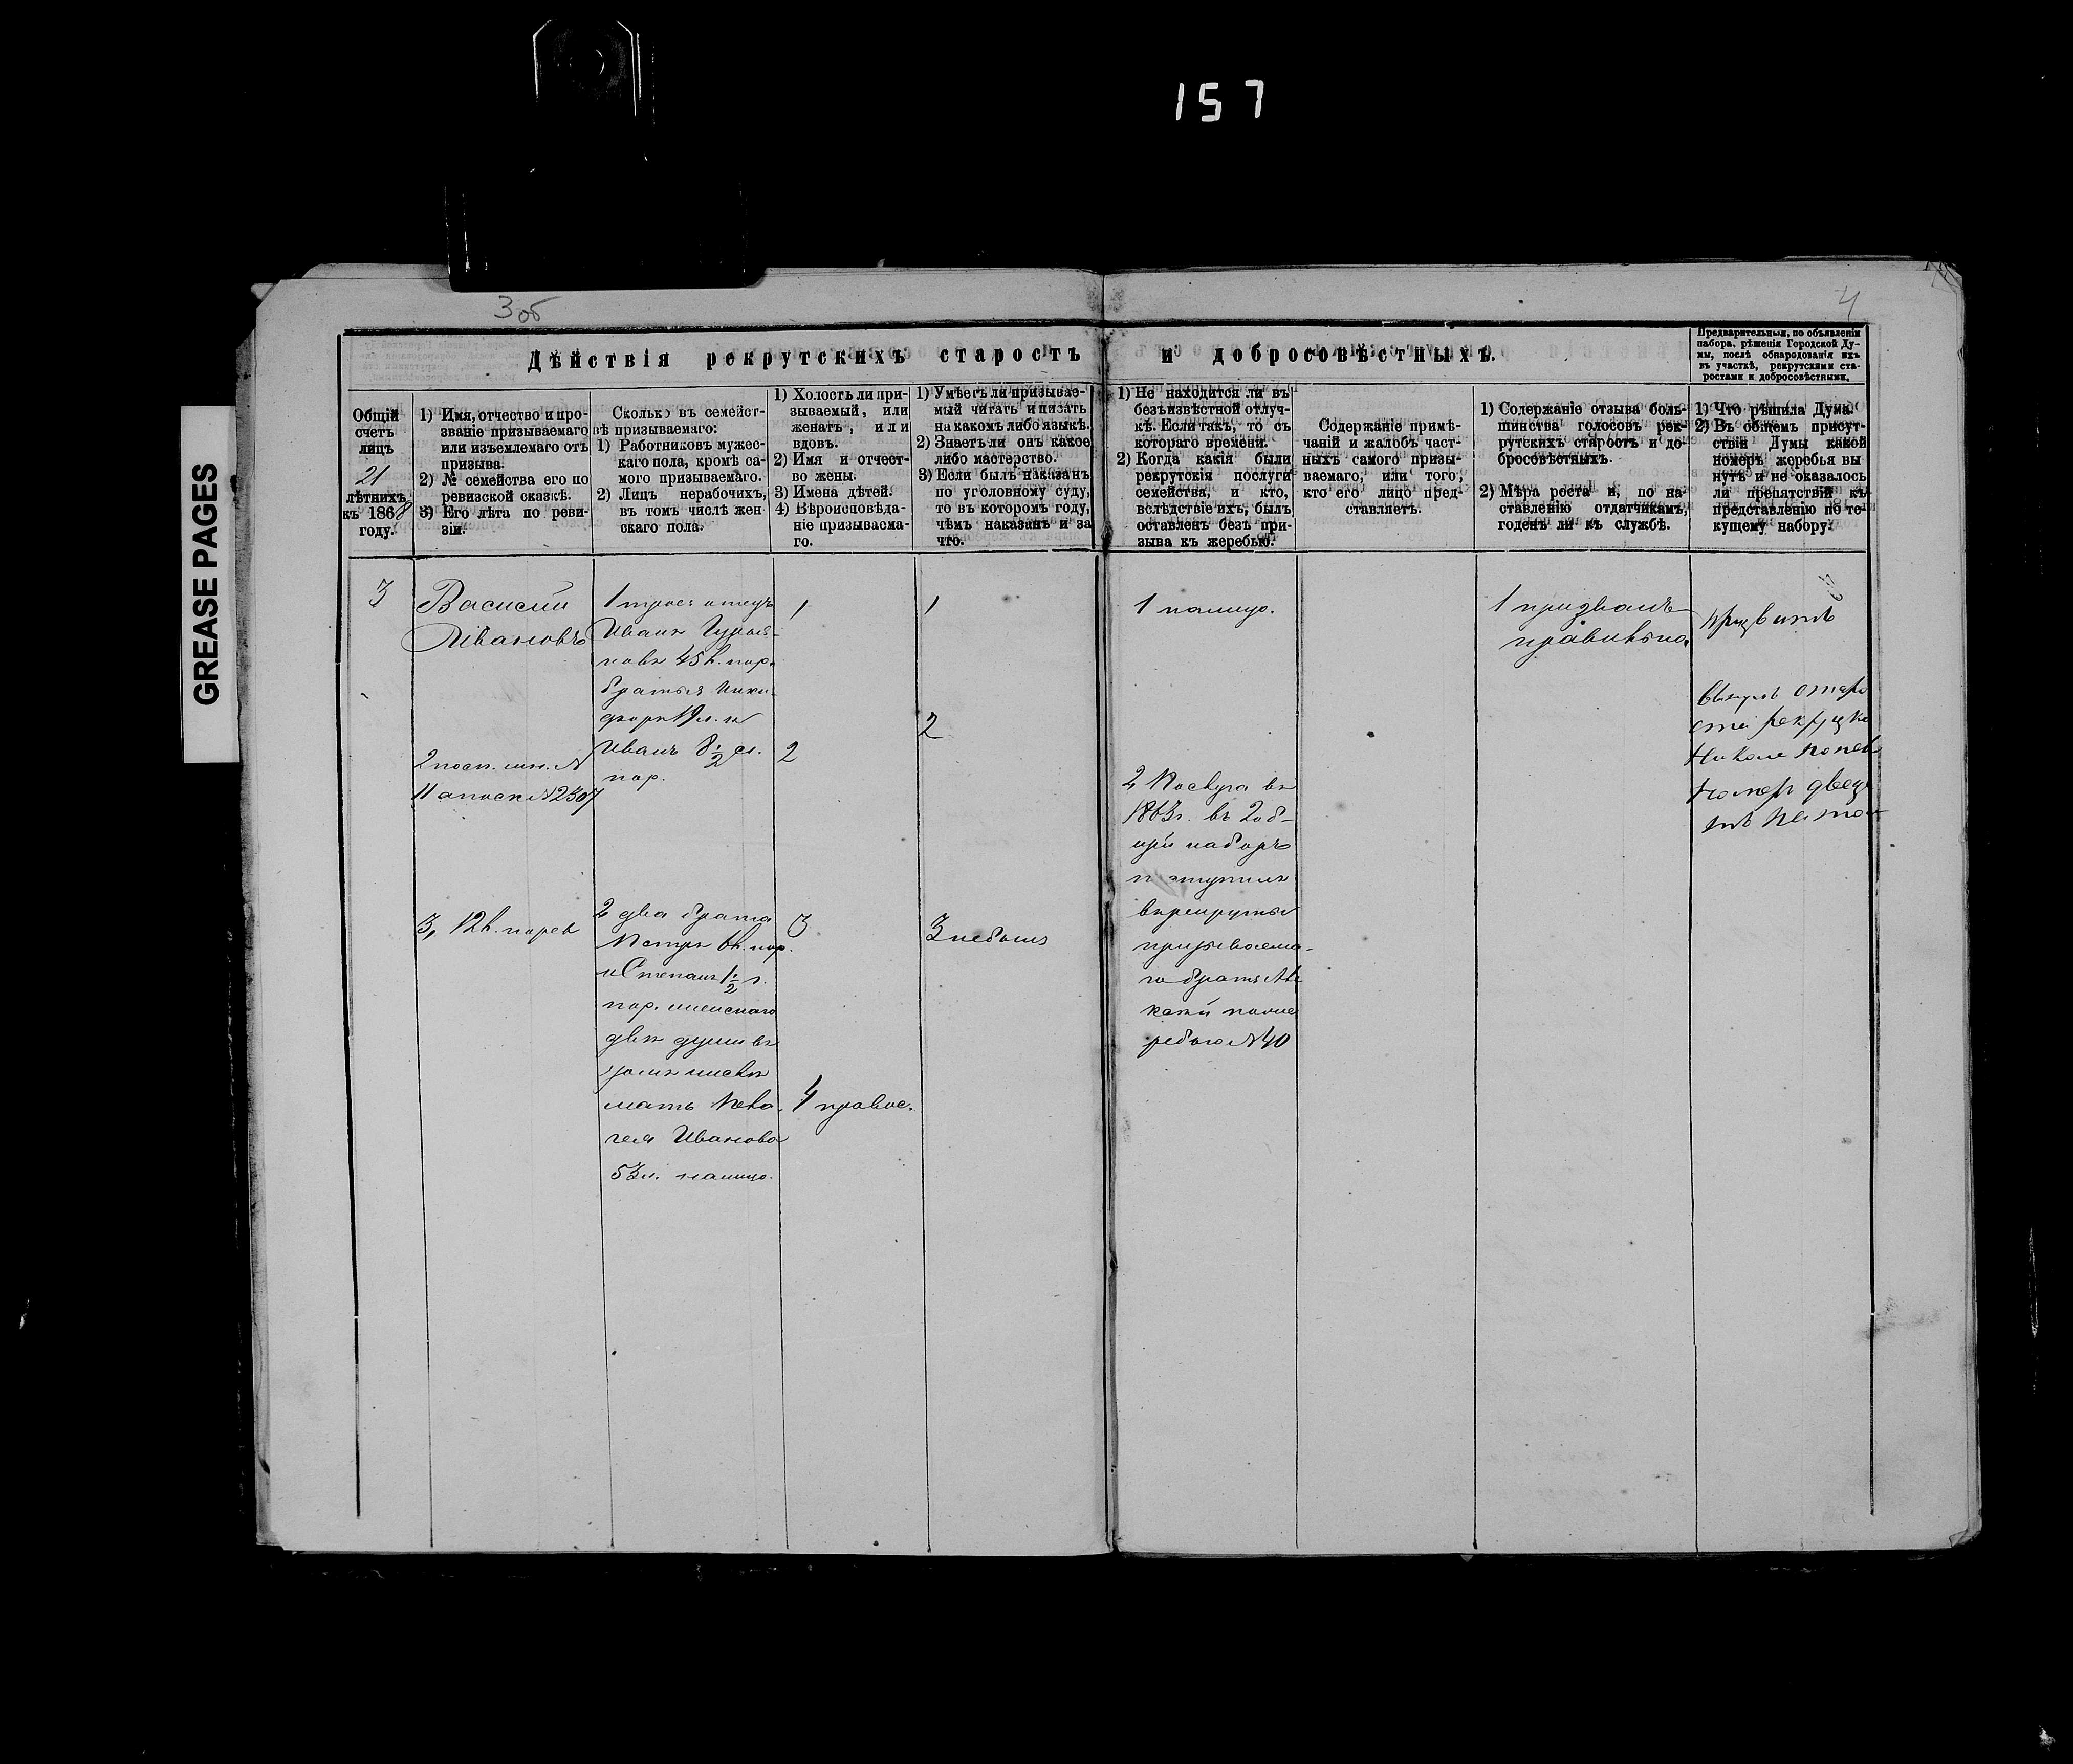 157
GREASE PAGES
3об
4
Дѣйствія рекрутскихъ старостъ и добросовѣстныхъ.
Предварительныя, по объявленіи
набора, рѣшенія Городской Ду-
мы, послѣ обнародованія ихъ
въ участкѣ, рекрутскими ста-
ростами и добросовѣстными.
Общій
счетъ
лицъ
21
лѣтнихъ
къ 1868
году.
1) Имя, отчество и про-
званіе призываемаго
или изъемлемаго отъ
призыва.
2) № семейства его по
ревизской сказкѣ.
3) Его лѣта по реви-
зіи.
Сколько въ семейст-
вѣ призываемаго:
1) Работниковъ мужес-
каго пола, кромѣ са-
мого призываемаго.
2) Лицъ нерабочихъ,
въ томъ числѣ жен
скаго пола.
1) Холостъ ли при-
зываемый, или
женатъ, или
вдовъ.
2) Имя и отчест-
во жены.
3) Имена дѣтей.
4) Вѣроисповѣда-
ніе призываема-
го.
1) Умѣетъ ли призывае-
мый читать и писать
на какомъ либо языкѣ.
2) Знаетъ ли онъ какое
либо мастерство.
3) Если былъ наказанъ
по уголовному суду,
то въ которомъ году,
чѣмъ наказанъ и за
что.
1) Не находится ли въ
безъизвѣстной отлуч-
кѣ. Если такъ, то съ
котораго времени.
2) Когда какія были
рекрутскія послуги
семейства, и кто,
вслѣдствіе ихъ, былъ
оставленъ безъ при-
зыва къ жеребью.
Содержаніе примѣ-
чаній и жалобъ част-
ныхъ самого призы-
ваемаго, или того,
кто его лицо пред-
ставляетъ.
1) Содержаніе отзыва боль-
шинства голосовъ рек-
рутскихъ старостъ и до-
бросовѣстныхъ.
2) Мѣра роста и, по на-
ставленію отдатчикамъ,
годенъ ли къ службѣ.
1) Что рѣшила Дума.
2) Въ общемъ присут-
ствіи Думы какой
номеръ жеребья вы
нутъ и не оказалось
ли препятствій къ
представленію по те-
кущему набору.
3
Василій
Ивановъ
3, 12 л. парев
1 трое: отецъ
Иванъ
45 л. пор.
братья Ники-
форъ 19 л. и
Иванъ 8 1/2 л.
пор.
2 два брата
Петръ 6 л. пор.
и Степанъ 1 1/2 г.
пор. женскаго
двѣ души въ
мать
Иванова
53 л. налицо.
1
2
3
4 правос.
1
2
3 небылъ
1 налицо.
2 Послуга въ
1863 г. въ 2 об-
щій наборъ
призываема-
го братъ
ребью №40
1 призвать
правильно.
призвать
вынулъ старо
ста рекрутск
номер двес